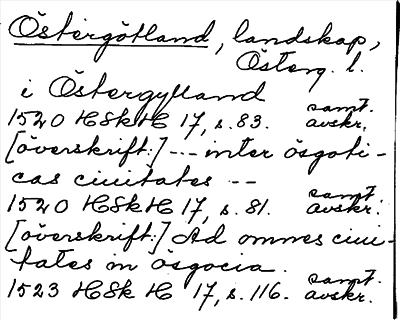 Östergötland, landskap,
Österg. l.
i Östergylland
1520 HSkH 17, s. 83. samt. avskr.
[överskrift:] --- inter ösgoti-
cas ciuitates --
1520 HSkH 17, s. 81. samt. avskr.
[överskrift:] Ad ommes ciui-
tates in ösgocia.
1523 HSkH 17, s. 116. samt. avskr.